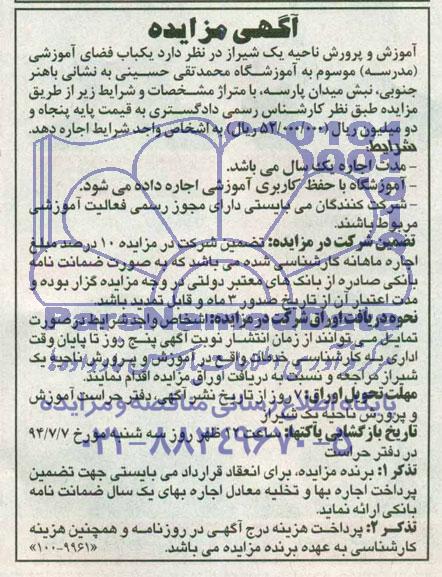 آگهی مزایده
آموزش و پرورش ناحیه یک شیراز در نظر دارد یکباب فضای آموزشی
(مدرسه) موسوم به آموزشگاه محمدتقی حسینی به نشانی باهنر
جنوبی، نبش میدان پارسه، با متراژ مشخصات و شرایط زیر از طریق
مزایده طبق نظر کارشناس رسمی دادگستری به قیمت پایه پنجاه و
دو میلیون ریال (۵۲/۰۰۰/۰۰۰ ریال) به اشخاص واجد شرایط اجاره دهد.
شرایط:
- مدت اجاره یک سال می باشد.
- آموزشگاه با حفظ کاربری آموزشی اجاره داده می شود.
- شرکت کنندگان می بایستی دارای مجوز رسمی فعالیت آموزشی
مربوط باشند.
تضمین شرکت در مزایده: تضمین شرکت در مزایده ۱۰ درصد مبلغ
اجاره ماهانه کارشناسی شده می باشد که به صورت ضمانت نامه
بانکی صادره از بانک های معتبر دولتی در وجه مزایده گزار بوده و
مدت اعتبار آن از تاریخ صدور ۳ ماه و قابل تمدید باشد.
نحوه دریافت اوراق شرکت در مزایده: اشخاص واجد شرایط در صورت
تمایل می توانند از زمان انتشار نوبت آگهی پنج روز تا پایان وقت
اداری به کارشناسی خدمات واقع در آموزش و پرورش ناحیه یک
شیراز مراجعه و نسبت به دریافت اوراق مزایده اقدام نمایند.
مهلت تحویل اوراق: ۷ روز از تاریخ نشر آگهی، دفتر حراست آموزش
و پرورش ناحیه یک شیراز
تاریخ بازگشایی پاکتها: ساعت ۱۲ ظهر روز سه شنبه مورخ ۹۴/۷/۷
در دفتر حراست
تذکر ۱: برنده مزایده، برای انعقاد قرارداد می بایستی جهت تضمین
پرداخت اجاره بها و تخلیه معادل اجاره بهای یک سال ضمانت نامه
بانکی ارائه نماید.
تذکر ۲: پرداخت هزینه درج آگهی در روزنامه و همچنین هزینه
کارشناسی به عهده برنده مزایده می باشد. «۹۹۶۱-۱۰۰»
پایگاه اطلاع رسانی مناقصه و مزایده
۰۲۱-۸۸۳۴۹۶۷۰-۵